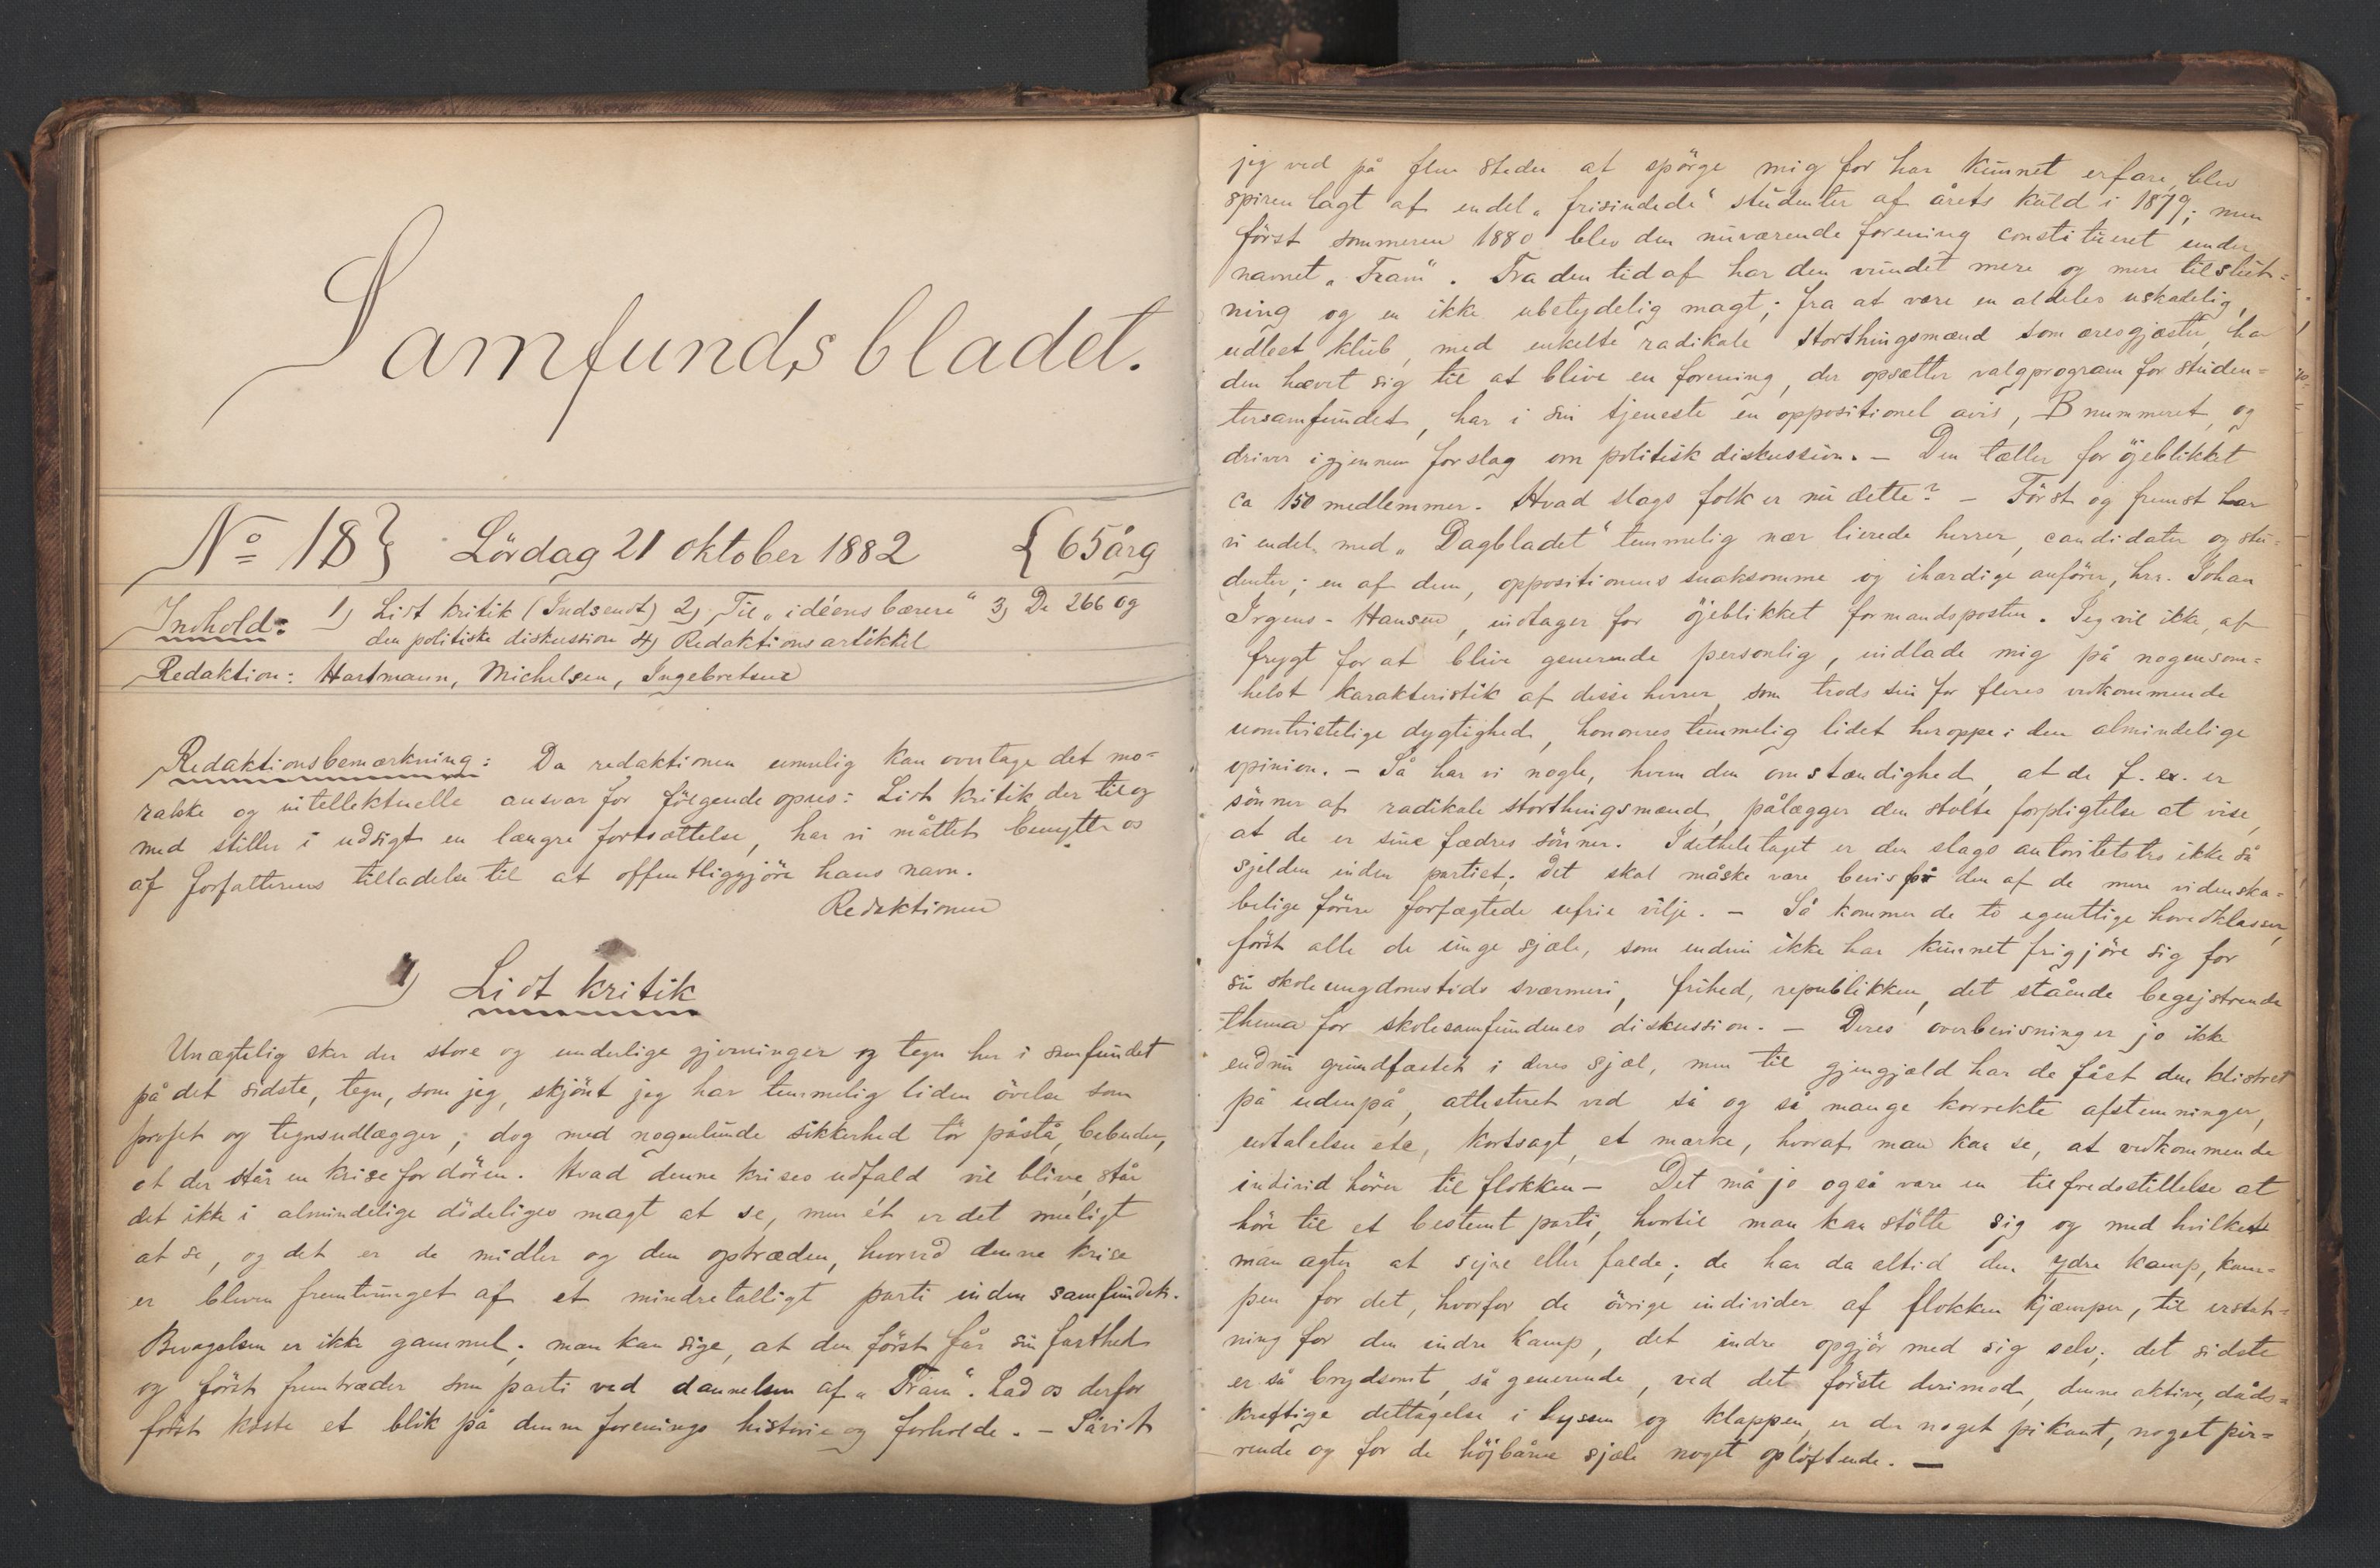 Samfundsbladet.
No 18} Lördag 21 oktober 1882 {65 årg
Indhold: 1) Lidt kritik (Indsendt) 2) Til „idéens bærere“ 3) De 266 og
den politiske diskussion 4) Redaktionsartikkel
Redaktion: Hartmann, Michelsen, Ingebretsen
Redaktionsbemærkning: Da redaktionen umulig kan overtage det mo-
ralske og intellektuelle ansvar for fölgende opus: Lidt kritik, der til og
med stiller i udsigt en længre fortsættelse, har vi måttet benytte os
af forfatterens tilladelse til at offentliggjöre hans navn.
Redaktionen
1) Lidt kritik
Unægtelig sker der store og underlige gjerninger og tegn her i samfundet
på det sidste, tegn, som jeg, skjönt jeg har temmelig liden övelse som
profet og tegnsudlægger, dog med nogenlunde sikkerhed tör påstå, bebuder,
at der står en krise for dören. Hvad denne krises udfald vil blive, står
det ikke i almindelige dödeliges magt at se, men ét er det muligt
at se, og det er de midler og den optræden, hvorved denne krise
er bleven fremtvunget af et mindretalligt parti inden samfundet.
Bevægelsen er ikke gammel; man kan sige, at den först får sin fasthed
og först fremtræder som parti ved dannelsen af „Fram“. Lad os derfor
först kaste et blik på denne forenings historie og forholde. – Såvidt
jeg ved på flere steder at spörge mig for har kunnet erfare, blev
spiren lagt af endel „frisindede“ studenter af årets kuld i 1879; men
först sommeren 1880 blev den nuværende forening constitueret under
navnet „Fram“. Fra den tid af har den vundet mere og mere tilslut-
ning og en ikke ubetydelig magt; fra at være en aldeles uskadelig,
udleet klub, med enkelte radikale storthingsmænd som æresgjæster, har
den hævet sig til at blive en forening, der opsætter valgprogram for studen-
tersamfundet, har i sin tjeneste en oppositionel avis, B nummeret, og
driver igjennem forslag om politisk diskussion. – Den tæller for öjeblikket
ca 150 medlemmer. Hvad slags folk er nu dette? – Först og fremst har
vi endel med „Dagbladet“ temmelig nær lierede herrer, candidater og stu-
denter; en af dem, oppositionens snaksomme og ihærdige anförer, hrr. Johan
Irgens-Hansen, indtager for öjeblikket formandsposten. Jeg vil ikke, af
frygt for at blive generende personlig, indlade mig på nogensom-
helst karakteristik af disse herrer, som trods sin for fleres vedkommende
uomtvistelige dygtighed, honoreres temmelig lidet heroppe i den almindelige
opinion. – Så har vi nogle, hvem den omstændighed, at de f. ex. er
sönner af radikale storthingsmænd, pålægger den stolte forpligtelse at vise,
at de er sine fædres sönner. I detheletaget er den slags autoritetstro ikke så
sjelden inden partiet; det skal måske være bevis på den af de mere videnska-
belige förere forfægtede ufrie vilje. – Så kommer de to egentlige hovedklasser,
först alle de unge sjæle, som endnu ikke har kunnet frigjöre sig for
sin skoleungdomstids sværmeri, frihed, republikken, det stående begejstrende
thema for skolesamfundenes diskussion. – Deres overbevisning er jo ikke
endnu grundfæstet i deres sjæl, men til gjengjæld har de fået den klistret
på udenpå, attesteret ved så og så mange korrekte afstemninger,
udtalelser etc, kortsagt, et mærke, hvoraf man kan se, at vedkommende
individ hörer til flokken – Det må jo også være en tilfredsstillelse at
höre til et bestemt parti, hvortil man kan stötte sig og med hvilket
man agter at sejre eller falde; de har da altid den ydre kamp, kam-
pen for det, hvorfor de övrige individer af flokken kjæmper, til erstat-
ning for den indre kamp, det indre opgjör med sig selv; det sidste
er så brydsomt, så generende, ved det förste derimod, denne aktive, dåds-
kraftige deltagelse i hyssen og klappen, er der noget pikant, noget pir-
rende og for de höjbårne sjæle noget oplöftende. –